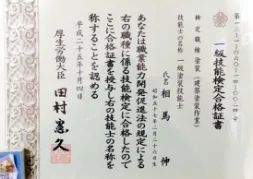 一級技能検定合格証書
検定職種 塗装(建築塗装作業)
技能士の名称 一級塗装技能士
氏名 相馬 伸
昭和五十七年二月二十六日生
あなたは職業能力開発促進法の規定による
右の職種に係る技能検定に合格したので
ここに合格証書を授与し右の技能士の名称を
称することを認める
平成二十五年十月四日
厚生労働大臣
田村憲久